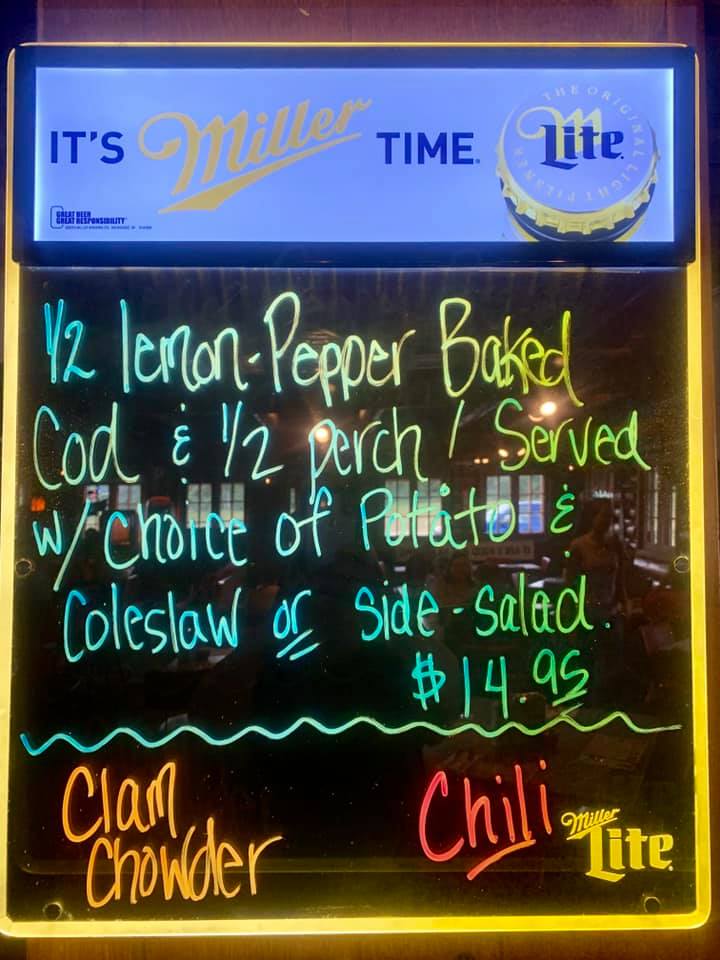 IT'S Miller TIME.
THE ORIGINAL LIGHT PILSNER
Lite
GREAT BEER
GREAT RESPONSIBILITY
1/2 lemon-Pepper Baked
Cod & 1/2 perch / Served
w/ choice of Potato &
Coleslaw or side-salad.
$14.95
Clam
Chowder
Chili
Miller
Lite